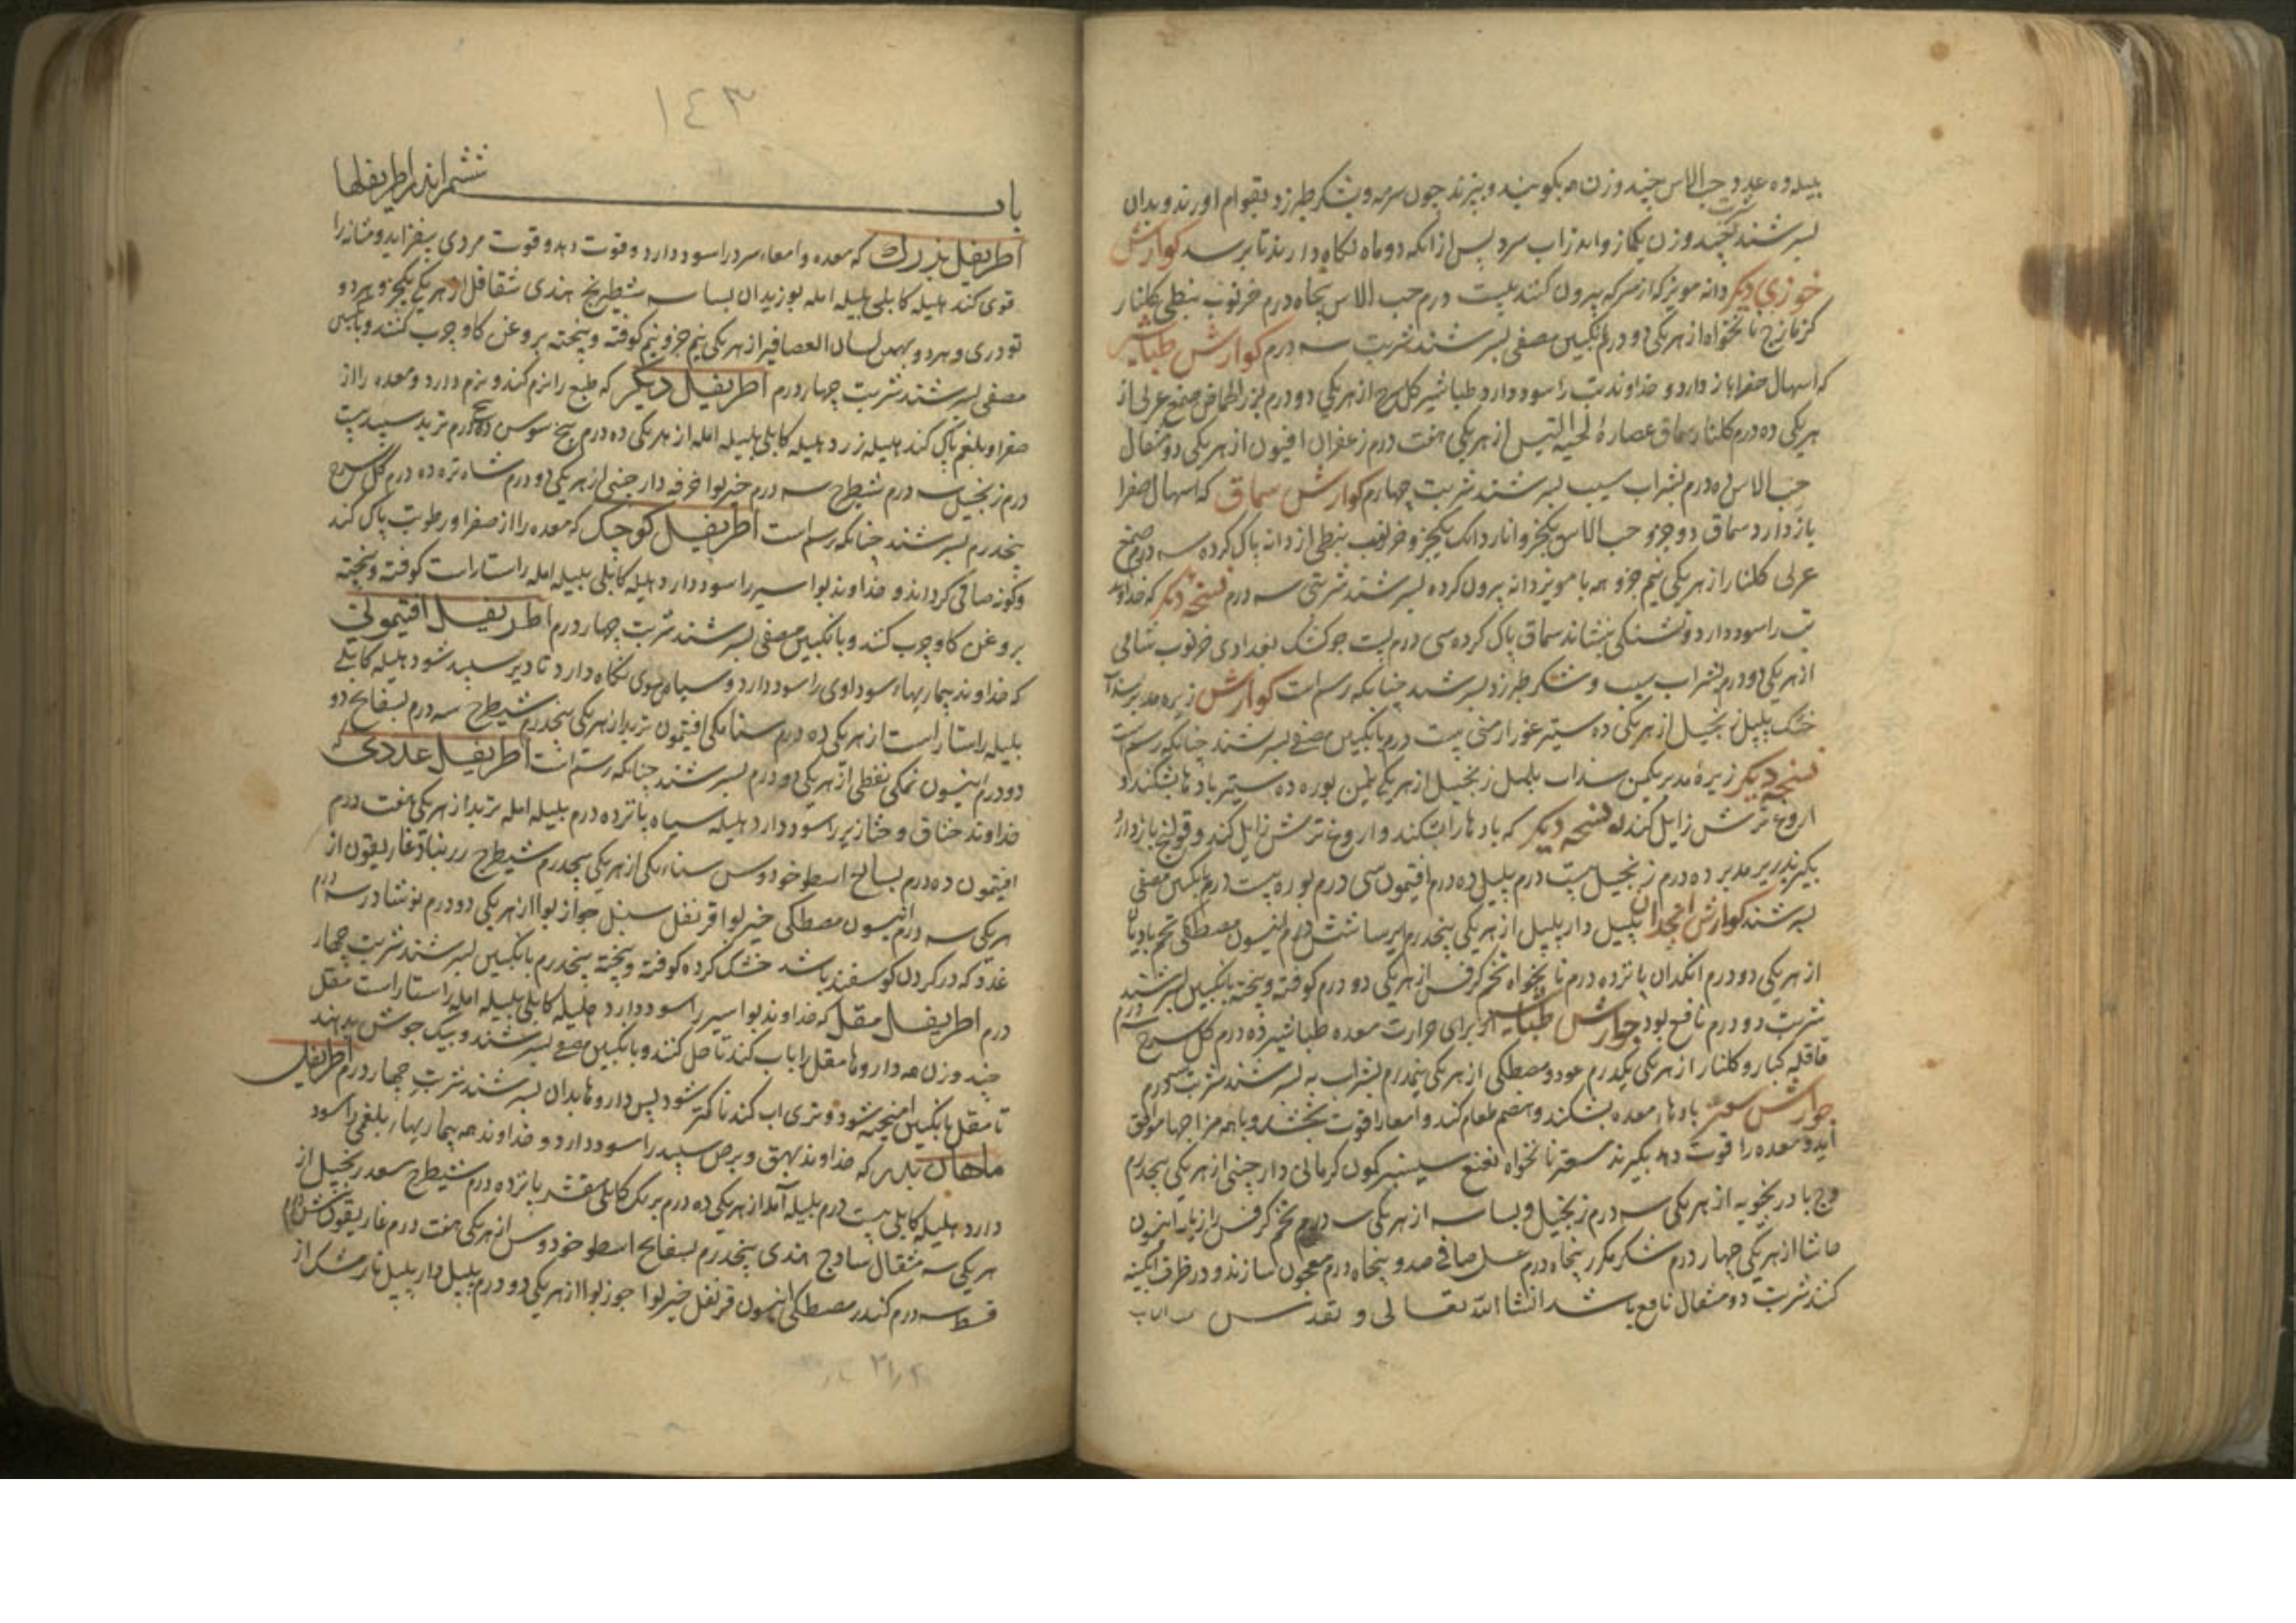 بلیله ده عدد حب الاس چند وزن همه بکوبند و ببزند چون سرمه و بشکر طبرزد بقوام اورند و بدان
بسرشند چند وزن یکماز واید زاب سرد پس از انکه دو ماه نکاه دارند تا برسد کوارش
خوزی دیکر دانه مویز که از سرکه بیرون کنند بیست درم حب الاس پنجاه درم خرنوب نبطی کلنار
کزمازج نانخواه از هر یکی دو درم انکبین مصفی بسرشند شربت سه درم کوارش طباشیر
که اسهال صفرا باز دارد و خداوند تب را سود دارد طباشیر کل سرخ از هر یکی دو درم بزر الحماض صمغ عربی از
هر یکی ده درم کلنار سماق عصارۀ لحیة التیس از هر یکی هفت درم زعفران افیون از هر یکی دو مثقال
حب الاس ده درم بشراب سیب بسرشند شربت چهارم کوارش سماق که اسهال صفرا
باز دارد سماق دو جزو حب الاس یکجزو اناردانک یکجزو خرنوب نبطی از دانه پاک کرده سه درم صمغ
عربی کلنار از هر یکی نیم جزو همه با مویز دانه بیرون کرده بسرشند شربتی سه درم نسخه دیکر که خداوند
تب را سود دارد و تشنکی بنشاند سماق پاک کرده سی درم پست جو کشک بغدادی خرنوب شامی
از هر یکی دو درم بشراب سیب و شکر طبرزد بسرشند چنانکه رسم است کوارش زیره مدبر سداب
خشک پلپل زنجبیل از هر یکی ده ستیر بوره ارمنی بیست درم بانکبین مصفی بسرشند چنانکه رسم است
نسخه دیکر زیرۀ مدبر یکمن سداب پلپل زنجبیل از هر یکی نیمن بوره ده ستیر بادها بشکند و
اروغ ترش زایل کند نسخه دیکر که بادها را بشکند و اروغ ترش زایل کند و قولنج باز دارد
بکیرند زیره مدبر ده درم زنجبیل بیست درم پلپل ده درم افتیمون سی درم بوره بیست درم بانکبین مصفی
بسرشند کوارش انجدان پلپل دارپلپل از هر یکی پنجدرم ایرسا شش درم انیسون مصطکی تخم بادیان
از هر یکی دو درم انکدان پانزده درم نانخواه تخم کرفس از هر یکی دو درم کوفته و بیخته بانکبین بسرشند
شربت دو درم نافع بود جوارش طباشیر از برای حرارت معده طباشیر ده درم کل سرخ سه درم
قاقله کبار و کلنار از هر یکی یکدرم عود و مصطکی از هر یکی نیمدرم بشراب به بسرشند شربت سه درم
جوارش سعتر بادهاء معده بشکند و هضم طعام کند و امعا را قوت بخشد و با همه مزاجها موافق
آید و معده را قوت دهد بکیرند سعتر نانخواه نعنع سیسنبر کمون کرمانی دارچینی از هر یکی پنجدرم
وج بادرنجبویه از هر یکی سه درم زنجبیل و بسباسه از هر یکی سه درم تخم کرفس رازیانه انیسون
ماشا از هر یکی چهار درم شکر مکرر پنجاه درم عسل صافی صد و پنجاه درم معجون سازند و در ظرف آبکینه
کنند شربت دو مثقال نافع باشد انشا الله تعالی و تقدس
١٤٣
باب ششم اندر اطریفلها
اطریفل بزرک که معده و امعاء سرد را سود دارد و قوت دهد و قوت مردی بیفزاید و مثانه را
قوی کند هلیله کابلی بلیله امله بوزیدان بسباسه شیطرج هندی شقاقل از هر یکی یکجزو هر دو
تودری و هر دو بهمن لسان العصافیر از هر یکی نیم جزو نیم کوفته و بیخته بروغن کاو چرب کنند و بانکبین
مصفی بسرشند شربت چهار درم اطریفل دیکر که طبع را نرم کند و نرم دارد و معده را از
صفرا و بلغم پاک کند هلیله زرد هلیله کابلی بلیله امله از هر یکی ده درم بیخ سوس ده درم تربد سپید بیست
درم زنجبیل سه درم شیطرج سه درم خیربوا قرفه دارچینی از هر یکی دو درم شاه تره ده درم کل سرخ
پنجدرم بسرشند چنانکه رسم است اطریفل کوچک که معده را از صفرا و رطوبت پاک کند
و کونه صافی کرداند و خداوند بواسیر را سود دارد هلیله کابلی بلیله امله راستاراست کوفته و بیخته
بروغن کاو چرب کند و بانکبین مصفی بسرشند شربت چهار درم اطریفل افتیمونی
که خداوند بیماریهاء سوداوی را سود دارد و سیاهی موی نکاه دارد تا دیر سپید شود هلیله کابلی
بلیله راستاراست از هر یکی ده درم سنا مکی افتیمون تربد از هر یکی پنجدرم شیطرج سه درم بسفایج دو
دو درم انیسون نمک نفطی از هر یکی دو درم بسرشند چنانکه رسم است اطریفل غددی
خداوند خناق و خنازیر را سود دارد هلیله سیاه پانزده درم بلیله امله تربد از هر یکی هفت درم
افتیمون ده درم بسفایج اسطوخودوس سناء مکی از هر یکی پنجدرم شیطرج زرنباد غاریقون از
هر یکی سه درم انیسون مصطکی خیربوا قرنفل سنبل جوز بوا از هر یکی دو درم نوشادر سه درم
غدد که در کردن کوسفند باشد خشک کرده کوفته و بیخته پنجدرم بانکبین بسرشند شربت چهار
درم اطریفل مقل که خداوند بواسیر را سود دارد هلیله کابلی بلیله امله راستاراست مقل
چند وزن همه داروها مقل را باب کندنا حل کنند و بانکبین مصفی بسرشند و بیک جوش بدهند
تا مقل بانکبین امیخته شود و تری اب کندنا کمتر شود پس داروها بدان بسرشند شربت چهار درم اطریفل
ماهان که خداوند بهق و برص سپید را سود دارد و خداوند همه بیماریهاء بلغمی را سود
دارد هلیله کابلی بیست درم بلیله آمله از هر یکی ده درم برنک کابلی مقشر پانزده درم شیطرج سعد زنجبیل از
هر یکی سه مثقال ساذج هندی پنجدرم بسفایج اسطوخودوس از هر یکی هفت درم غاریقون شش درم
قسط سه درم کندر مصطکی انیسون قرنفل خیربوا جوزبوا از هر یکی دو درم پلپل دارپلپل نارمشک از